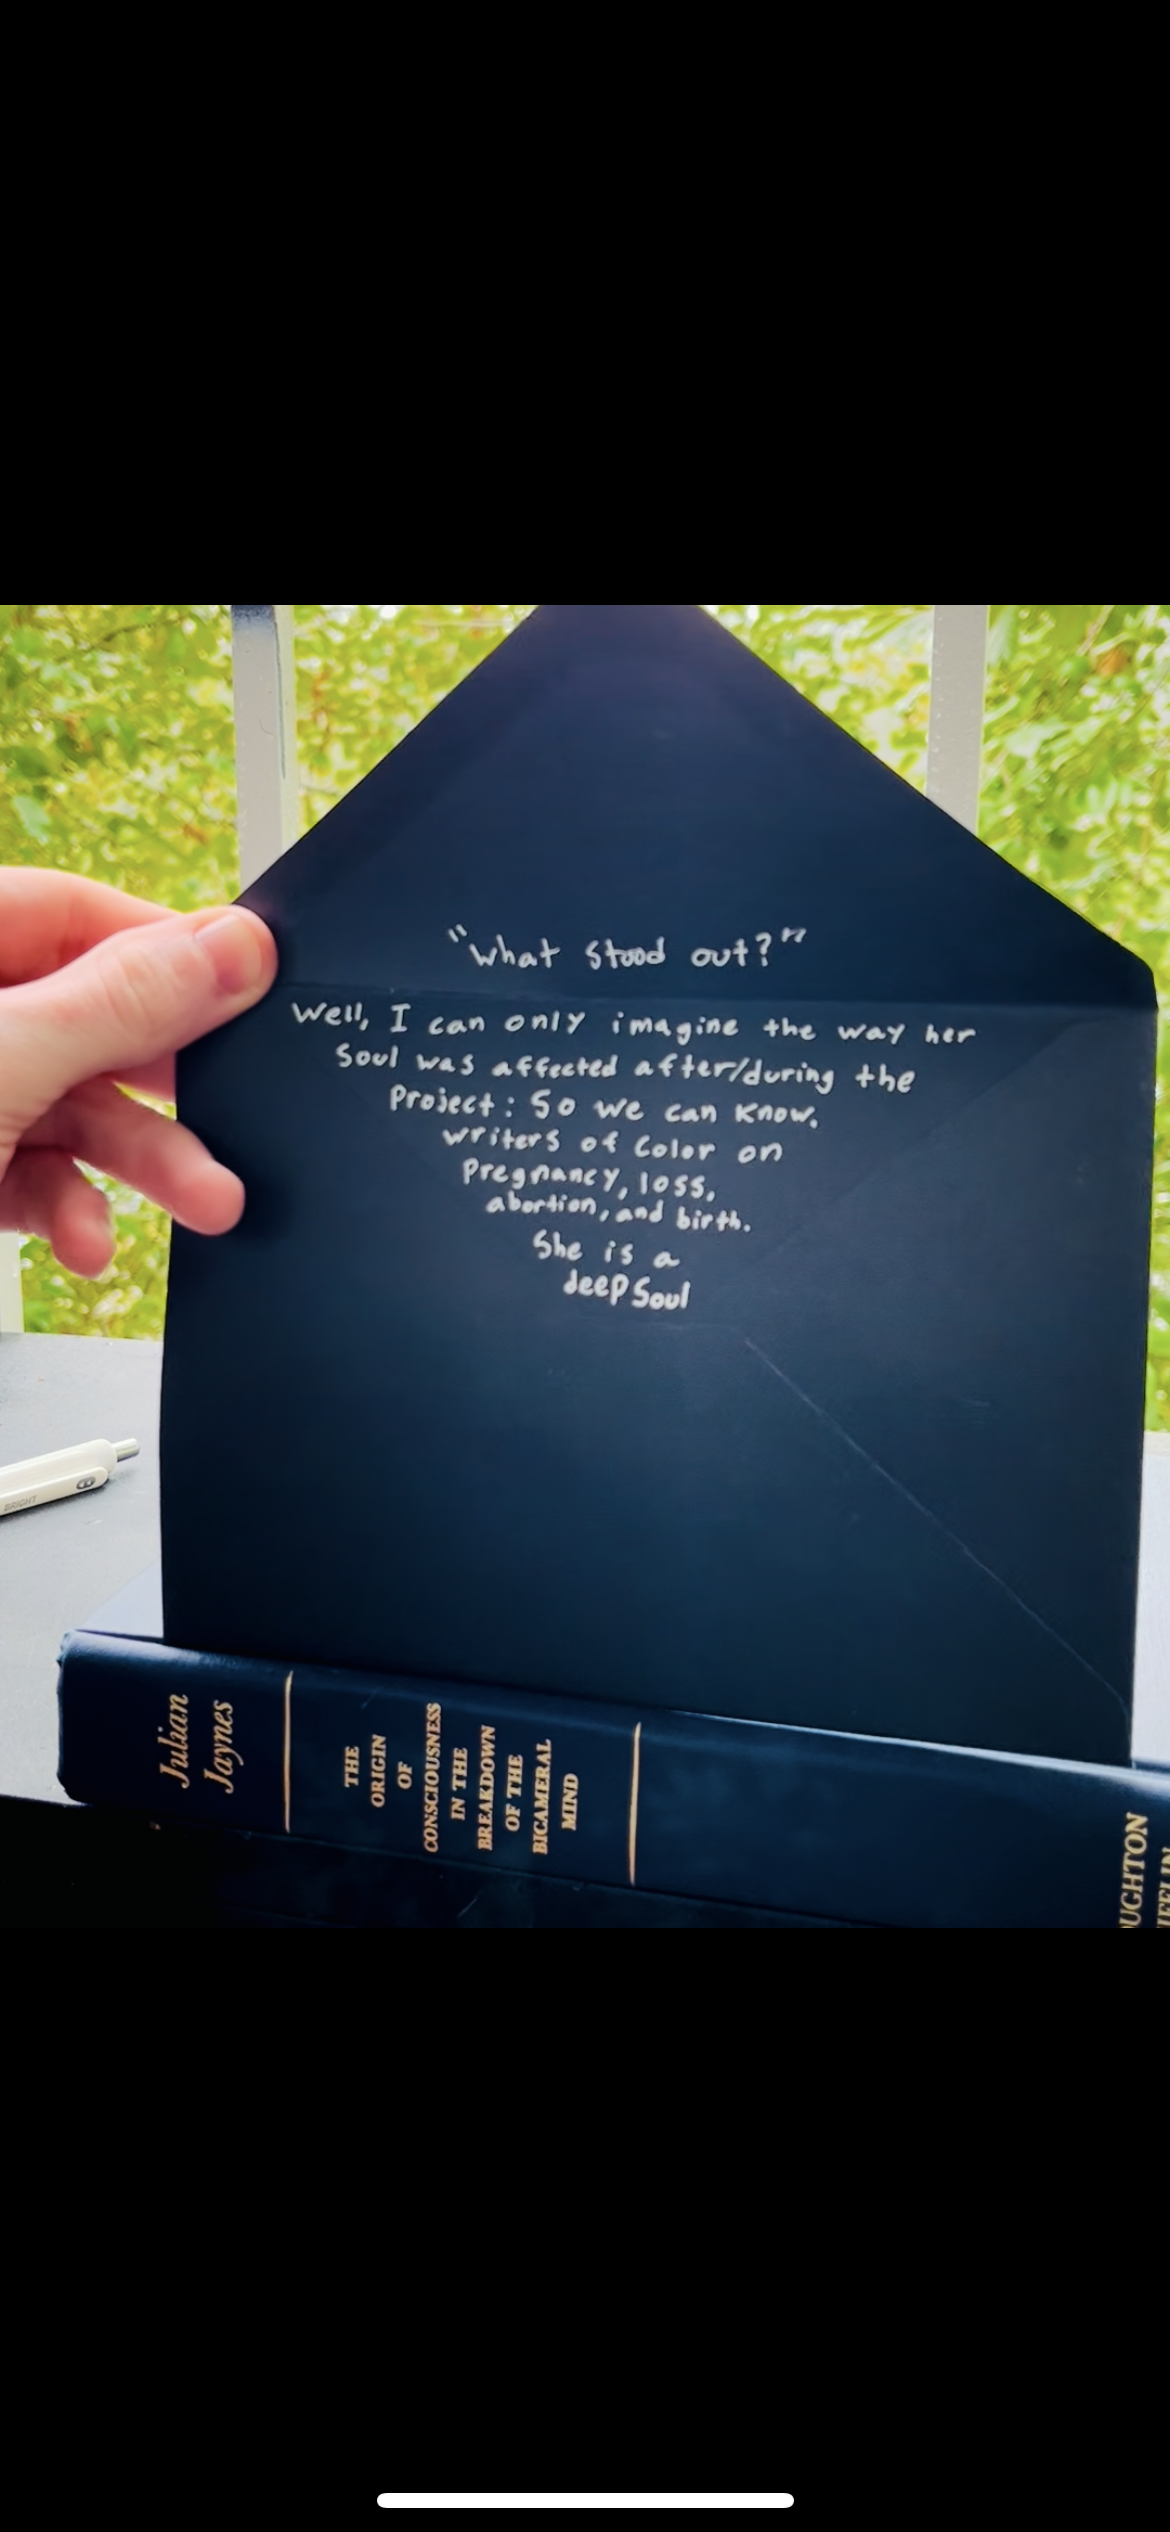 "What stood out?"
Well, I can only imagine the way her
Soul was affected after/during the
Project: So we can Know.
writers of Color on
Pregnancy, loss,
abortion, and birth.
She is a
deep Soul
BRIGHT
Julian
Jaynes
THE
ORIGIN
OF
CONSCIOUSNESS
IN THE
BREAKDOWN
OF THE
BICAMERAL
MIND
OUGHTON